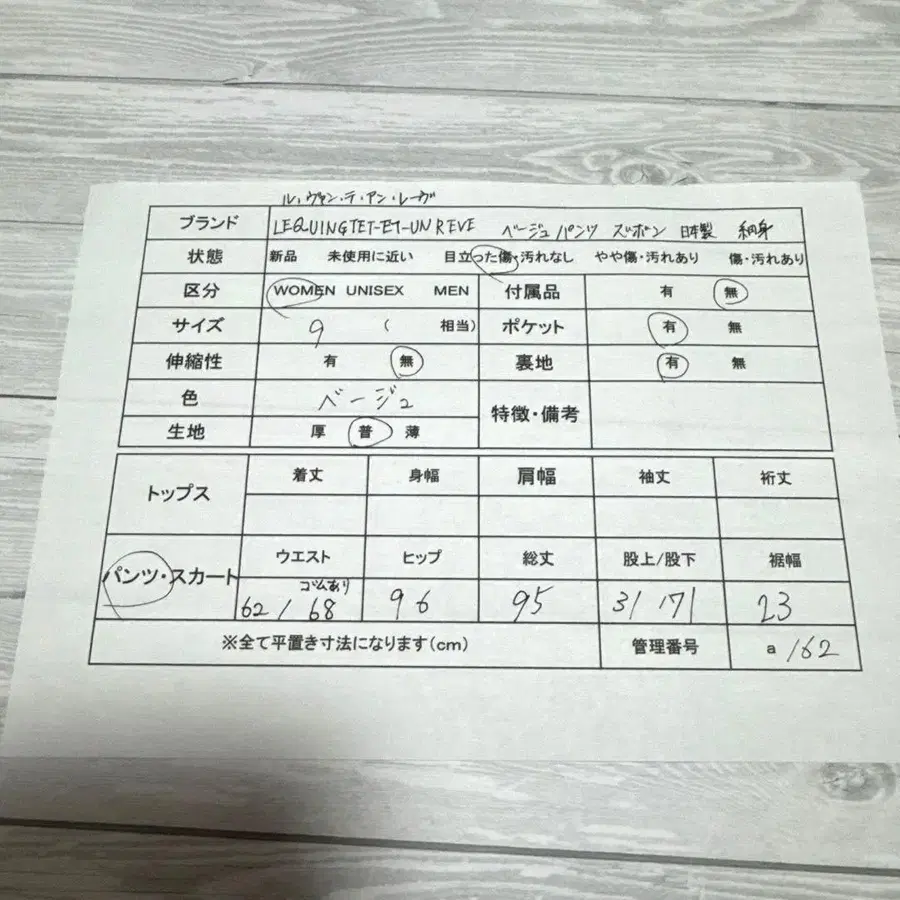 ル・ヴァン・テ・アン・レーヴ
ブランド LEQUINGTET-ET-UN REVE ベージュ パンツ ズボン 日本製 細身
状態 新品 未使用に近い 目立った傷・汚れなし やや傷・汚れあり 傷・汚れあり
区分 WOMEN UNISEX MEN 付属品 有 無
サイズ 9 ( 相当) ポケット 有 無
伸縮性 有 無 裏地 有 無
色 ベージュ 特徴・備考
生地 厚 普 薄
トップス 着丈 身幅 肩幅 袖丈 裄丈
パンツ・スカート ウエスト ヒップ 総丈 股上/股下 裾幅
ゴムあり
62/68 96 95 31/71 23
※全て平置き寸法になります(cm) 管理番号 a 162